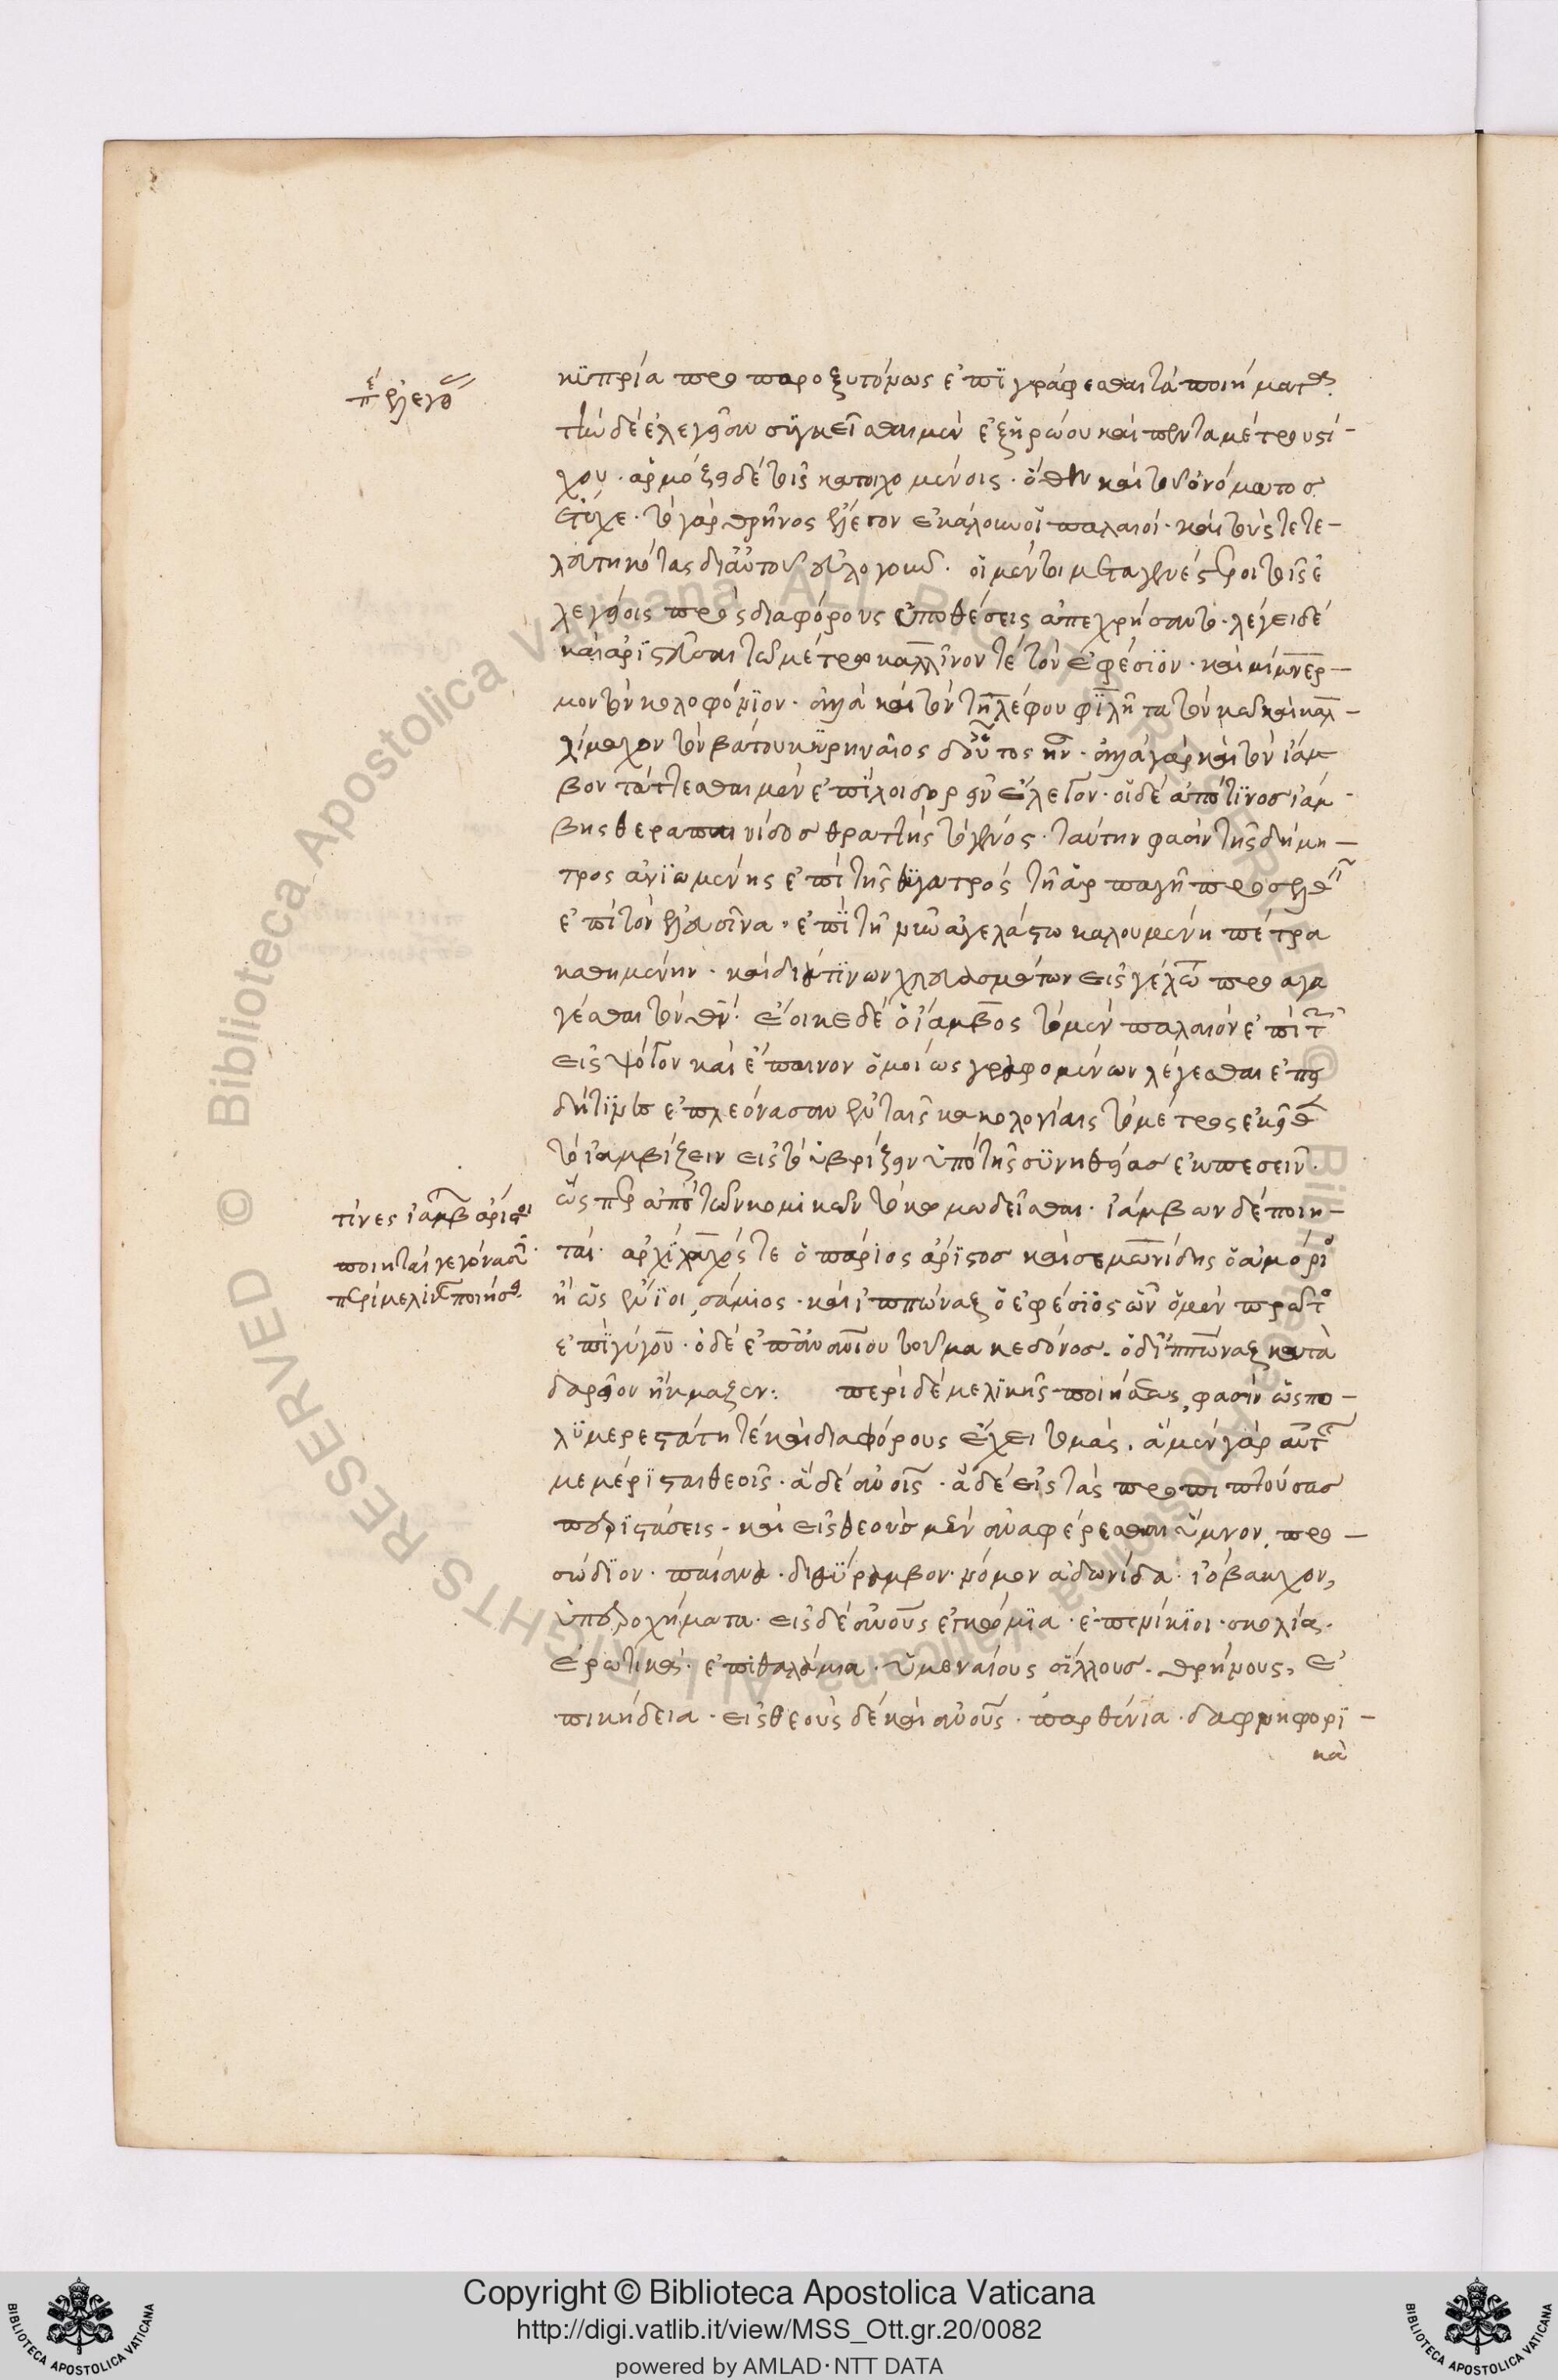 περὶ ἐλέγου
κϋπρία προπαροξυτόνως ἐπϊγράφεσθαι τὰ ποιήματα.
τὴν δὲ ἐλεγείαν σϋγκεῖσθαι μὲν ἐξ ἡρώου καὶ πενταμέτρου στί-
χου. ἁρμόζει δὲ τοῖς κατοιχομένοις. ὅθεν καὶ τοῦ ὀνόματος
ἔτυχε. τὸ γὰρ θρῆνος ἔλεγον ἐκάλουν οἱ παλαιοί. καὶ τοὺς τετε-
λευτηκότας δι' αὐτοῦ εὐλόγουν. οἱ μέντοι μεταγενέστεροι τοῖς ἐ
λεγείοις πρὸς διαφόρους ὑποθέσεις ἀπεχρήσαντο. λέγει δὲ
καὶ ἀρϊστεῦσαι τῶ μέτρω καλλῖνον τὲ τὸν ἐφέσϊον. καὶ μίμνερ-
μον τὸν κολοφόνϊον. ἀλλὰ καὶ τὸν τηλέφου φϊλητᾶ τὸν κῶ καὶ καλ-
λίμαχον τὸν βάτου κϋρηναῖος δ' οὗτος ἦν. ἀλλὰ γὰρ καὶ τὸν ἴαμ
βον τάττεσθαι μὲν ἐπϊλοιδορεῖν ἔλεγον. οἱ δὲ ἀπὸ τϊνος ἰάμ-
βης θεραπαινίδος θράττης τὸ γένος. ταύτην φασὶν τῆς δήμη-
τρος ἀνϊωμένης ἐπὶ τῆς θϋγατρὸς τῇ ἁρπαγῇ προσελθεῖν
ἐπὶ τὸν ἐλευσῖνα. ἐπϊ τῇ νῦν ἀγελάστω καλουμένη πέτρα
καθημένην. καὶ διά τϊνων χλευασμάτων εἰς γέλωτα προαγα
γέσθαι τὴν θεόν. ἔοικε δὲ ὁ ἴαμβος τὸ μὲν παλαιὸν ἐπὶ τῶν
εἰς ψόγον καὶ ἔπαινον ὁμοίως γραφομένων λέγεσθαι ἐπεὶ
δή τϊνες ἐπλεόνασαν ἐν ταῖς κακολογίαις τὸ μέτρος ἐκεῖθεν
τὸ ἰαμβίζειν εἰς τὸ ὑβρίζειν ὑπὸ τῆς σϋνηθείας ἐκπεσεῖν.
ὥσπερ ἀπὸ τῶν κομικῶν τὸ κωμωδεῖσθαι. ἰάμβων δὲ ποιη-
τίνες ἰάμβων ἄριστοι
ποιηταὶ γεγόνασιν
ταὶ. ἀρχίλοχός τε ὁ πάριος ἄρϊστος καὶ σεμωνίδης ὁ ἀμόριος
περὶ μελικῆς ποιήσεως
ἢ ὡς ἔνϊοι, σάμιος. καὶ ἱππώναξ ὁ ἐφέσϊος ὧν ὁ μὲν πρῶτος
ἐπϊ γύγου. ὁ δὲ ἐπ' ἀνανίου τοῦ μακεδόνος. ὁ δ' ἱππώναξ κατὰ
δαρεῖον ἤκμαζεν: περὶ δὲ μελϊκῆς ποιήσεως, φασὶν ὡς πο-
λϋμερεστάτη τὲ καὶ διαφόρους ἔχει τομάς. ἃ μὲν γὰρ αὐτῆς
μεμέρϊσται θεοῖς. ἃ δὲ ἀνοῖς. ἃ δὲ εἰς τὰς προπιπτούσας
περϊστάσεις. καὶ εἰς θεοὺς μὲν ἀναφέρεσθαι ὕμνον, προ-
σώδϊον. παίανα. διθύραμβον. νόμον ἀδωνίδα. ἰόβακχον,
ὑπορχήματα. εἰς δὲ ἀνους ἐγκώμϊα. ἐπινίκϊοι. σκολιάς.
ἐρωτικὰ. ἐπιθαλάμια. ὑμεναίους σίλλους. θρήνους, ἐ
πικήδεια. εἰς θεοὺς δὲ καὶ ἀνους. παρθένια. δαφνηφορϊ-
κὰ
© Biblioteca Apostolica Vaticana ALL RIGHTS RESERVED © Biblioteca Apostolica Vaticana ALL RIGHTS RESERVED
Copyright © Biblioteca Apostolica Vaticana
http://digi.vatlib.it/view/MSS_Ott.gr.20/0082
powered by AMLAD·NTT DATA
BIBLIOTECA APOSTOLICA VATICANA
BIBLIOTECA APOSTOLICA VATICANA